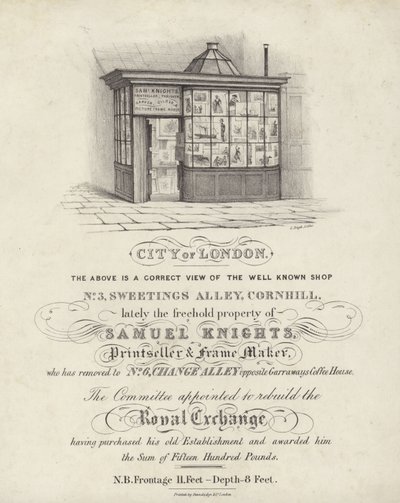 SAML. KNIGHTS.
PRINTSELLER, PUBLISHER
CARVER, GILDER
PICTURE FRAME MAKER
CITY OF LONDON.
THE ABOVE IS A CORRECT VIEW OF THE WELL KNOWN SHOP
No. 3, SWEETINGS ALLEY, CORNHILL,
lately the freehold property of
SAMUEL KNIGHTS,
Printseller & Frame Maker,
who has removed to No. 6, CHANGE ALLEY opposite Garraways Coffee House.
The Committee appointed to rebuild the
Royal Exchange
having purchased his old Establishment and awarded him
the Sum of Fifteen Hundred Pounds.
N.B. Frontage 11. Feet – Depth – 8 Feet.